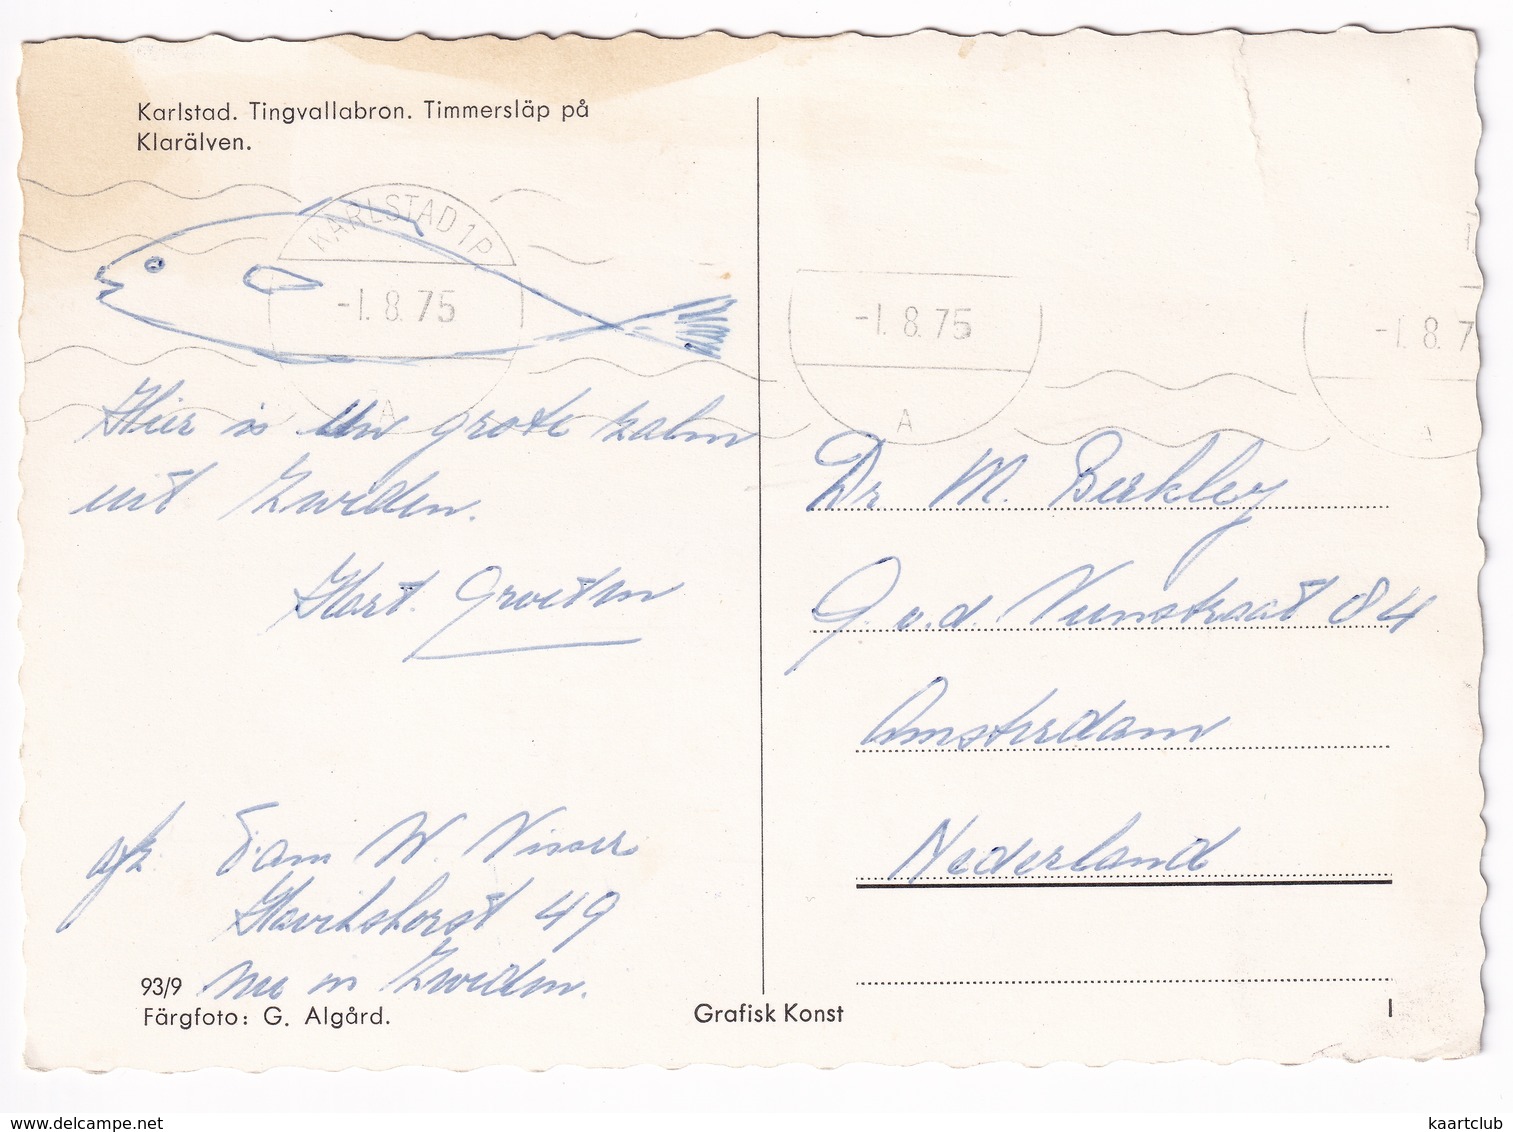 Karlstad. Tingvallabron. Timmersläp på
Klarälven.
KARLSTAD 1 P
-1.8.75
A
-1.8.75
A
-1.8.7
A
Hier is een grote zalm
uit Zweden.
Hart. Groeten
afz. Fam W. Visser
Havikshorst 49
nu in Zweden.
Dr M. Berkley
G. v.d. Veenstraat 84
Amsterdam
Nederland
93/9
Färgfoto: G. Algård.
Grafisk Konst
I
www.delcampe.net
kaartclub